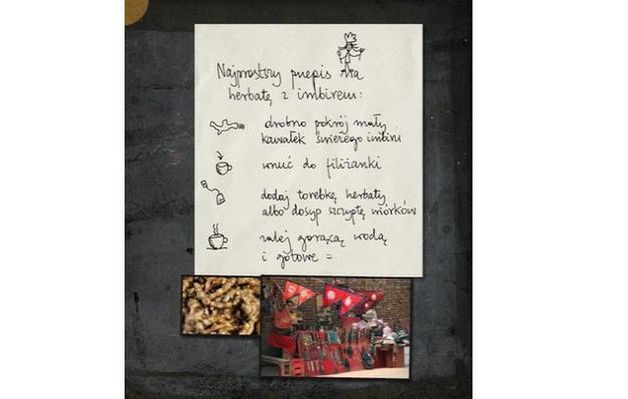 Najprostszy przepis na
herbatę z imbirem:
drobno pokrój mały
kawałek świeżego imbiru
wrzuć do filiżanki
dodaj torebkę herbaty
albo dosyp szczyptę wiórków
zalej gorącą wodą
i gotowe =